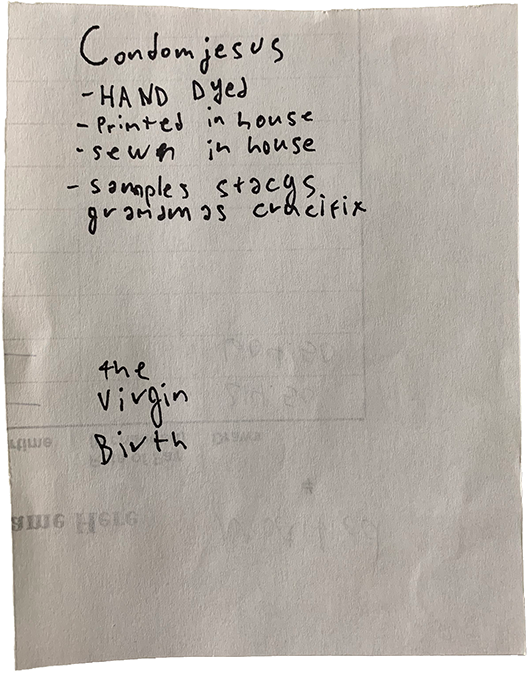 Condomjesus
- HAND Dyed
- Printed in house
- sewn in house
- samples stacys
grandmas crucifix
the
Virgin
Birth